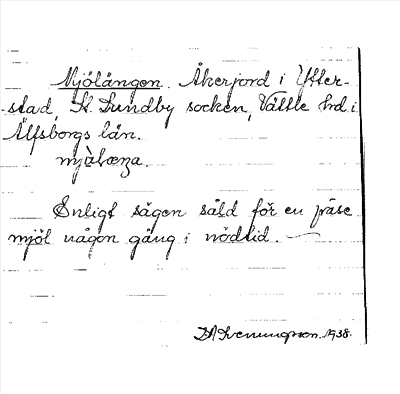 Mjölängen. Åkerjord i Ytter-
stad, St. Lundby socken, Vättle hd. i
Älfsborgs län.
Enligt sägen såld för en påse
mjöl någon gång i nödtid.
1938.